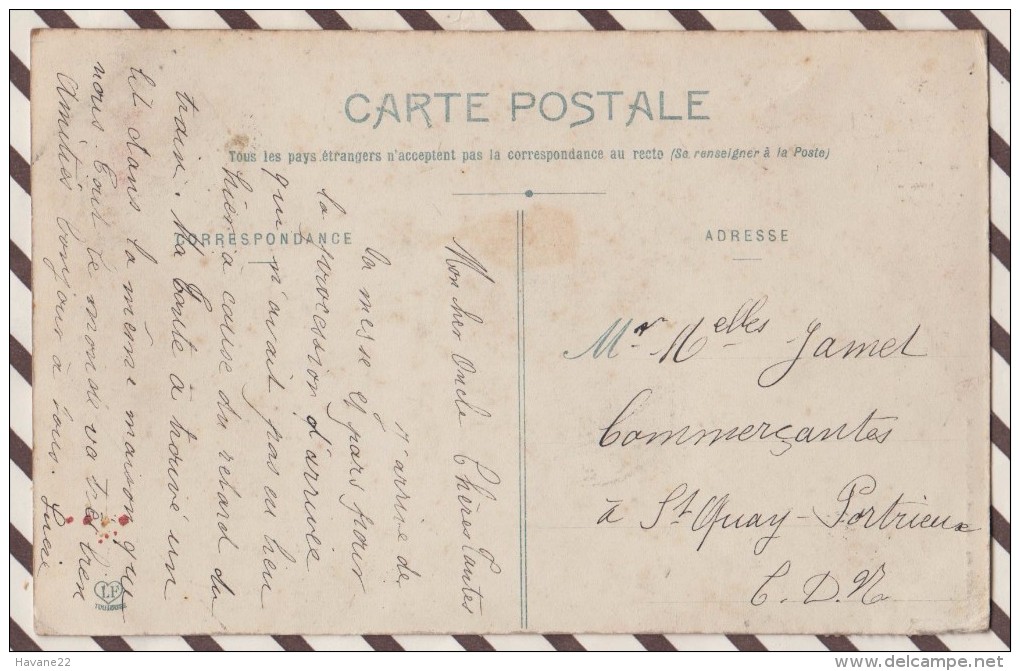 CARTE POSTALE
Tous les pays étrangers n'acceptent pas la correspondance au recto (Se renseigner à la Poste)
CORRESPONDANCE
Mon cher Oncle Chères Tantes
J'arrive de
la messe et pars pour
la procession d'arrivée
qui n'avait pas eu lieu
hier à cause du retard du
train. Ma Tante à trouvé un
lit dans la même maison que
nous. Tout le monde va très bien
Amitiés bonjour à tous.
Lucie
LF
TOULOUSE
ADRESSE
Mr Melles Jamet
Commerçantes
à St Quay-Portrieux
C.D.N.
Havane22
www.delcampe.net